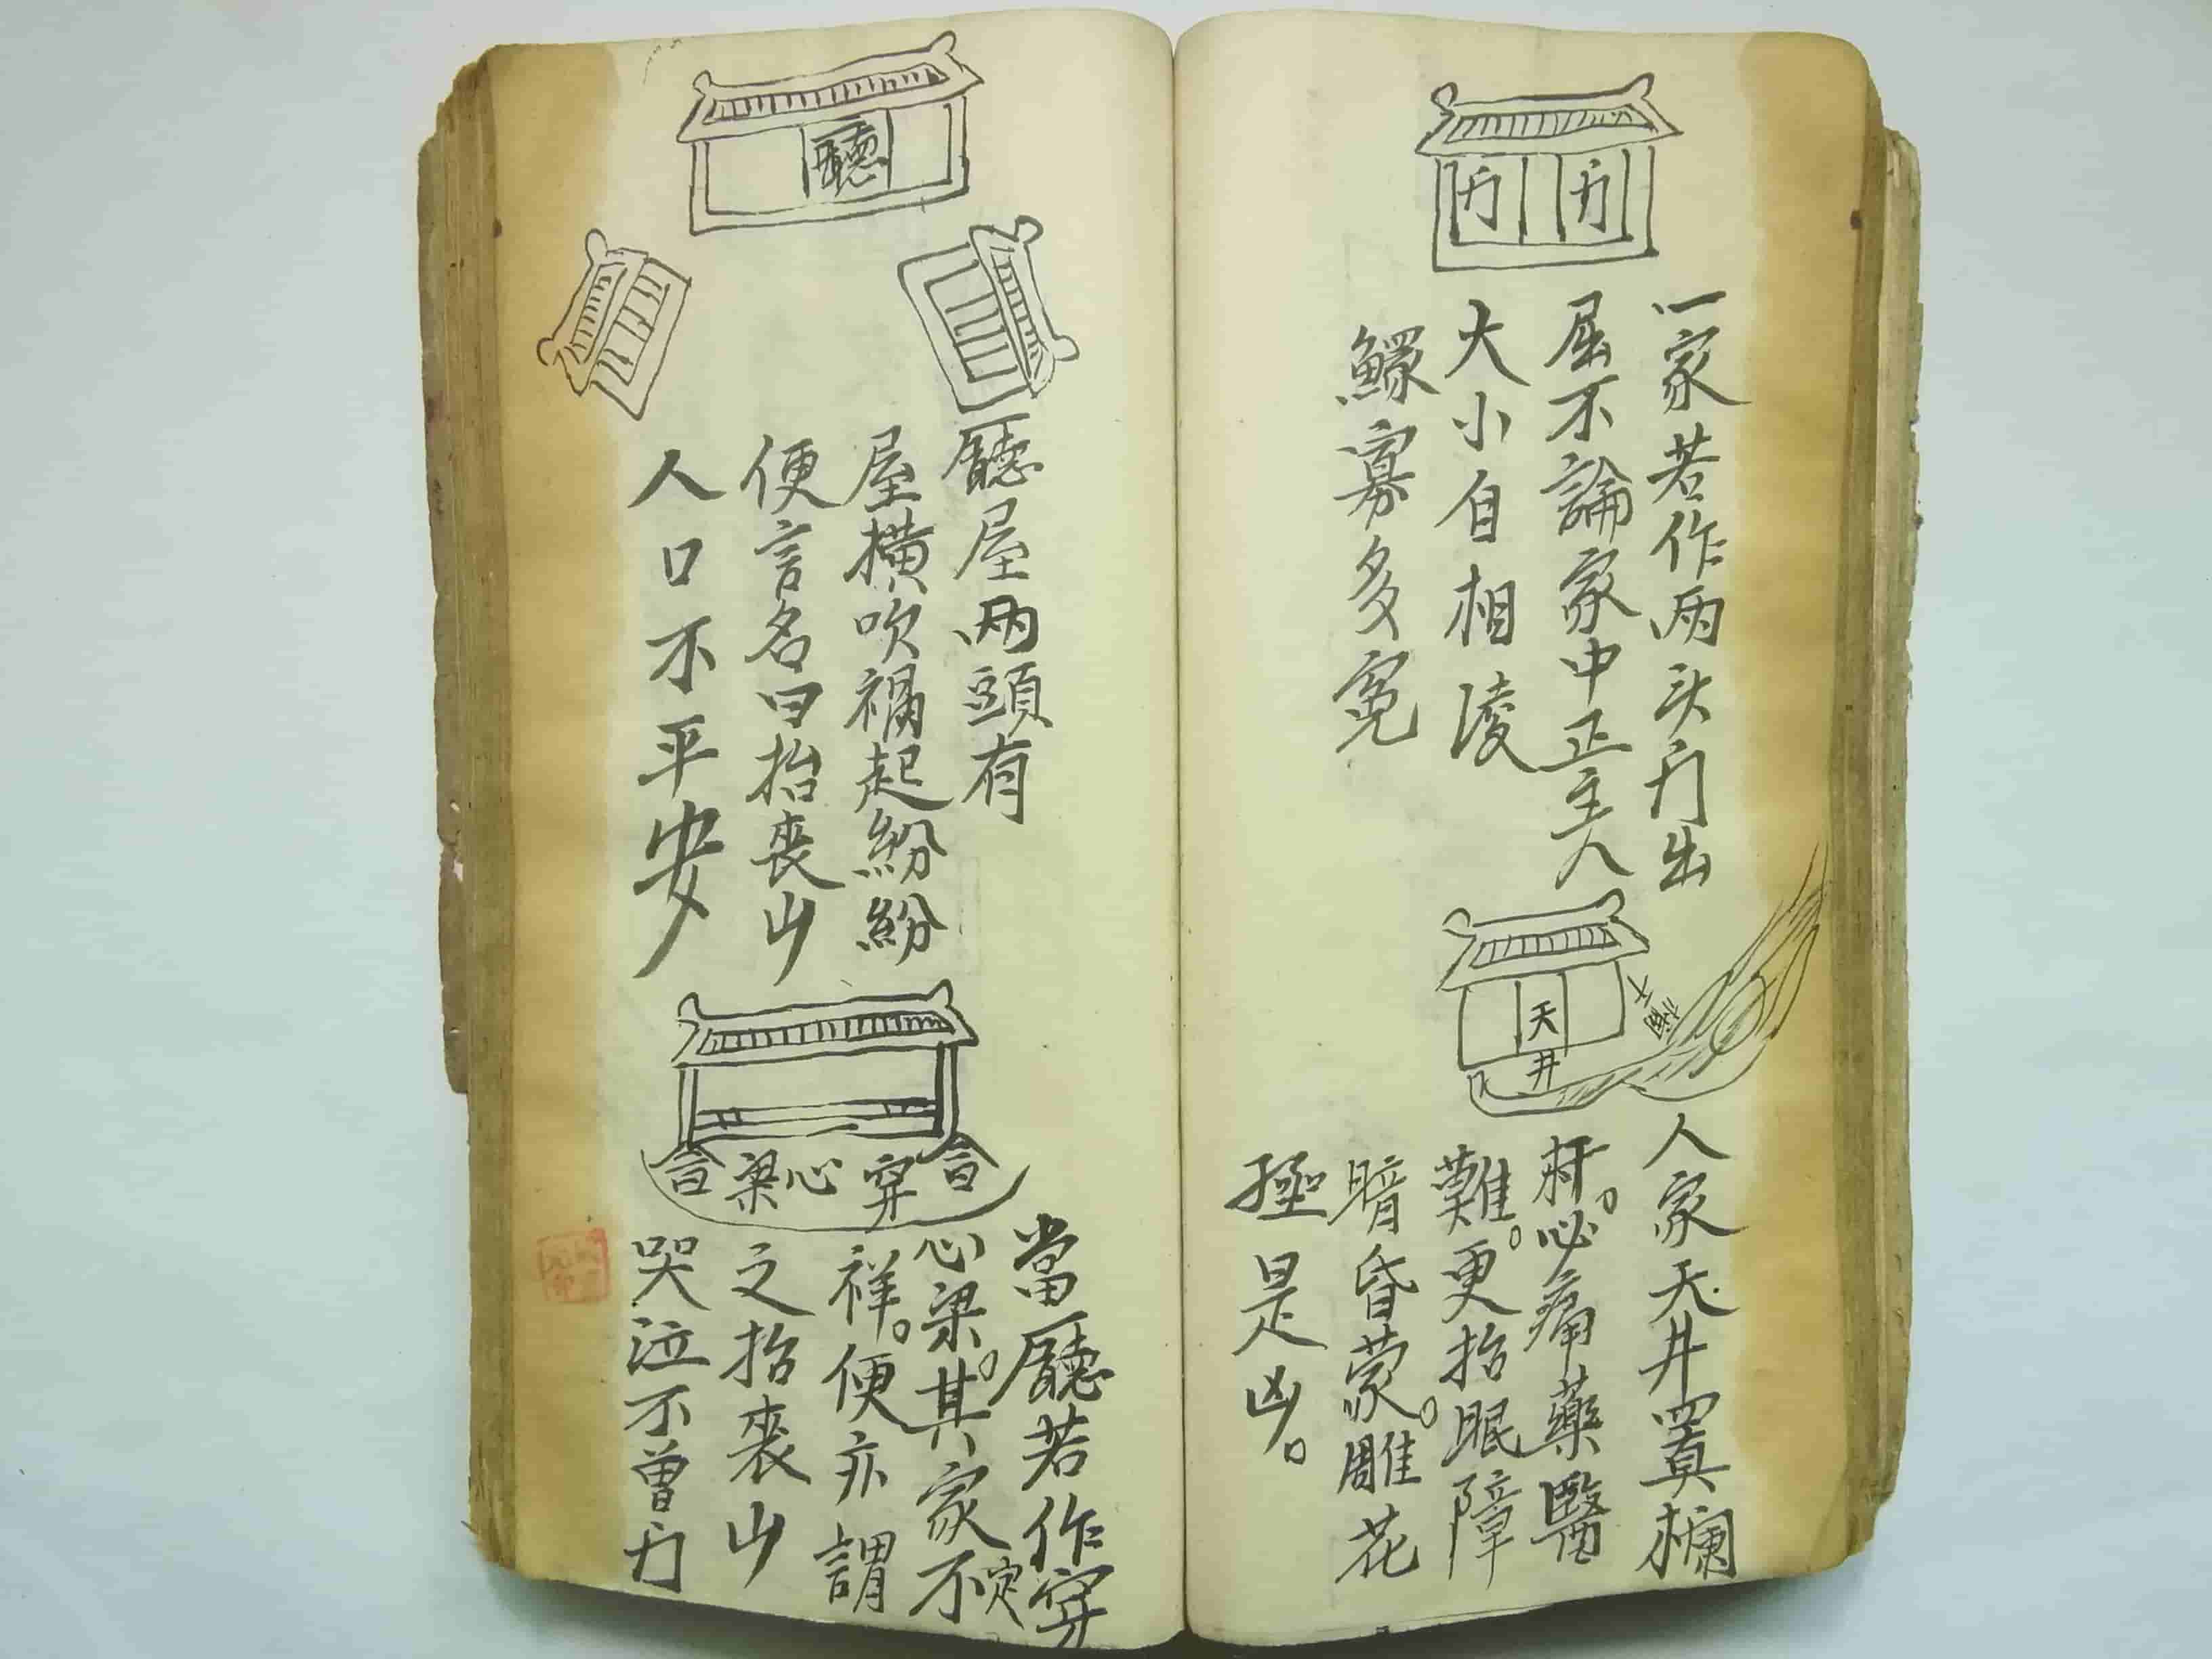 门 门
一家若作两头门出
屈不論家中正主人
大小自相凌
鰥寡多寃
天井
人家天井置欄
杆。必痛藥醫
難。更抬眼障
暗昏蒙。雕花
極是凶。
廳
廳屋两頭有
屋橫吹禍起紛紛
便言名曰抬喪山
人口不平安
穿心梁
當廳若作穿
心梁。其家不定
祥。便亦謂
之抬喪山
哭泣不曾门